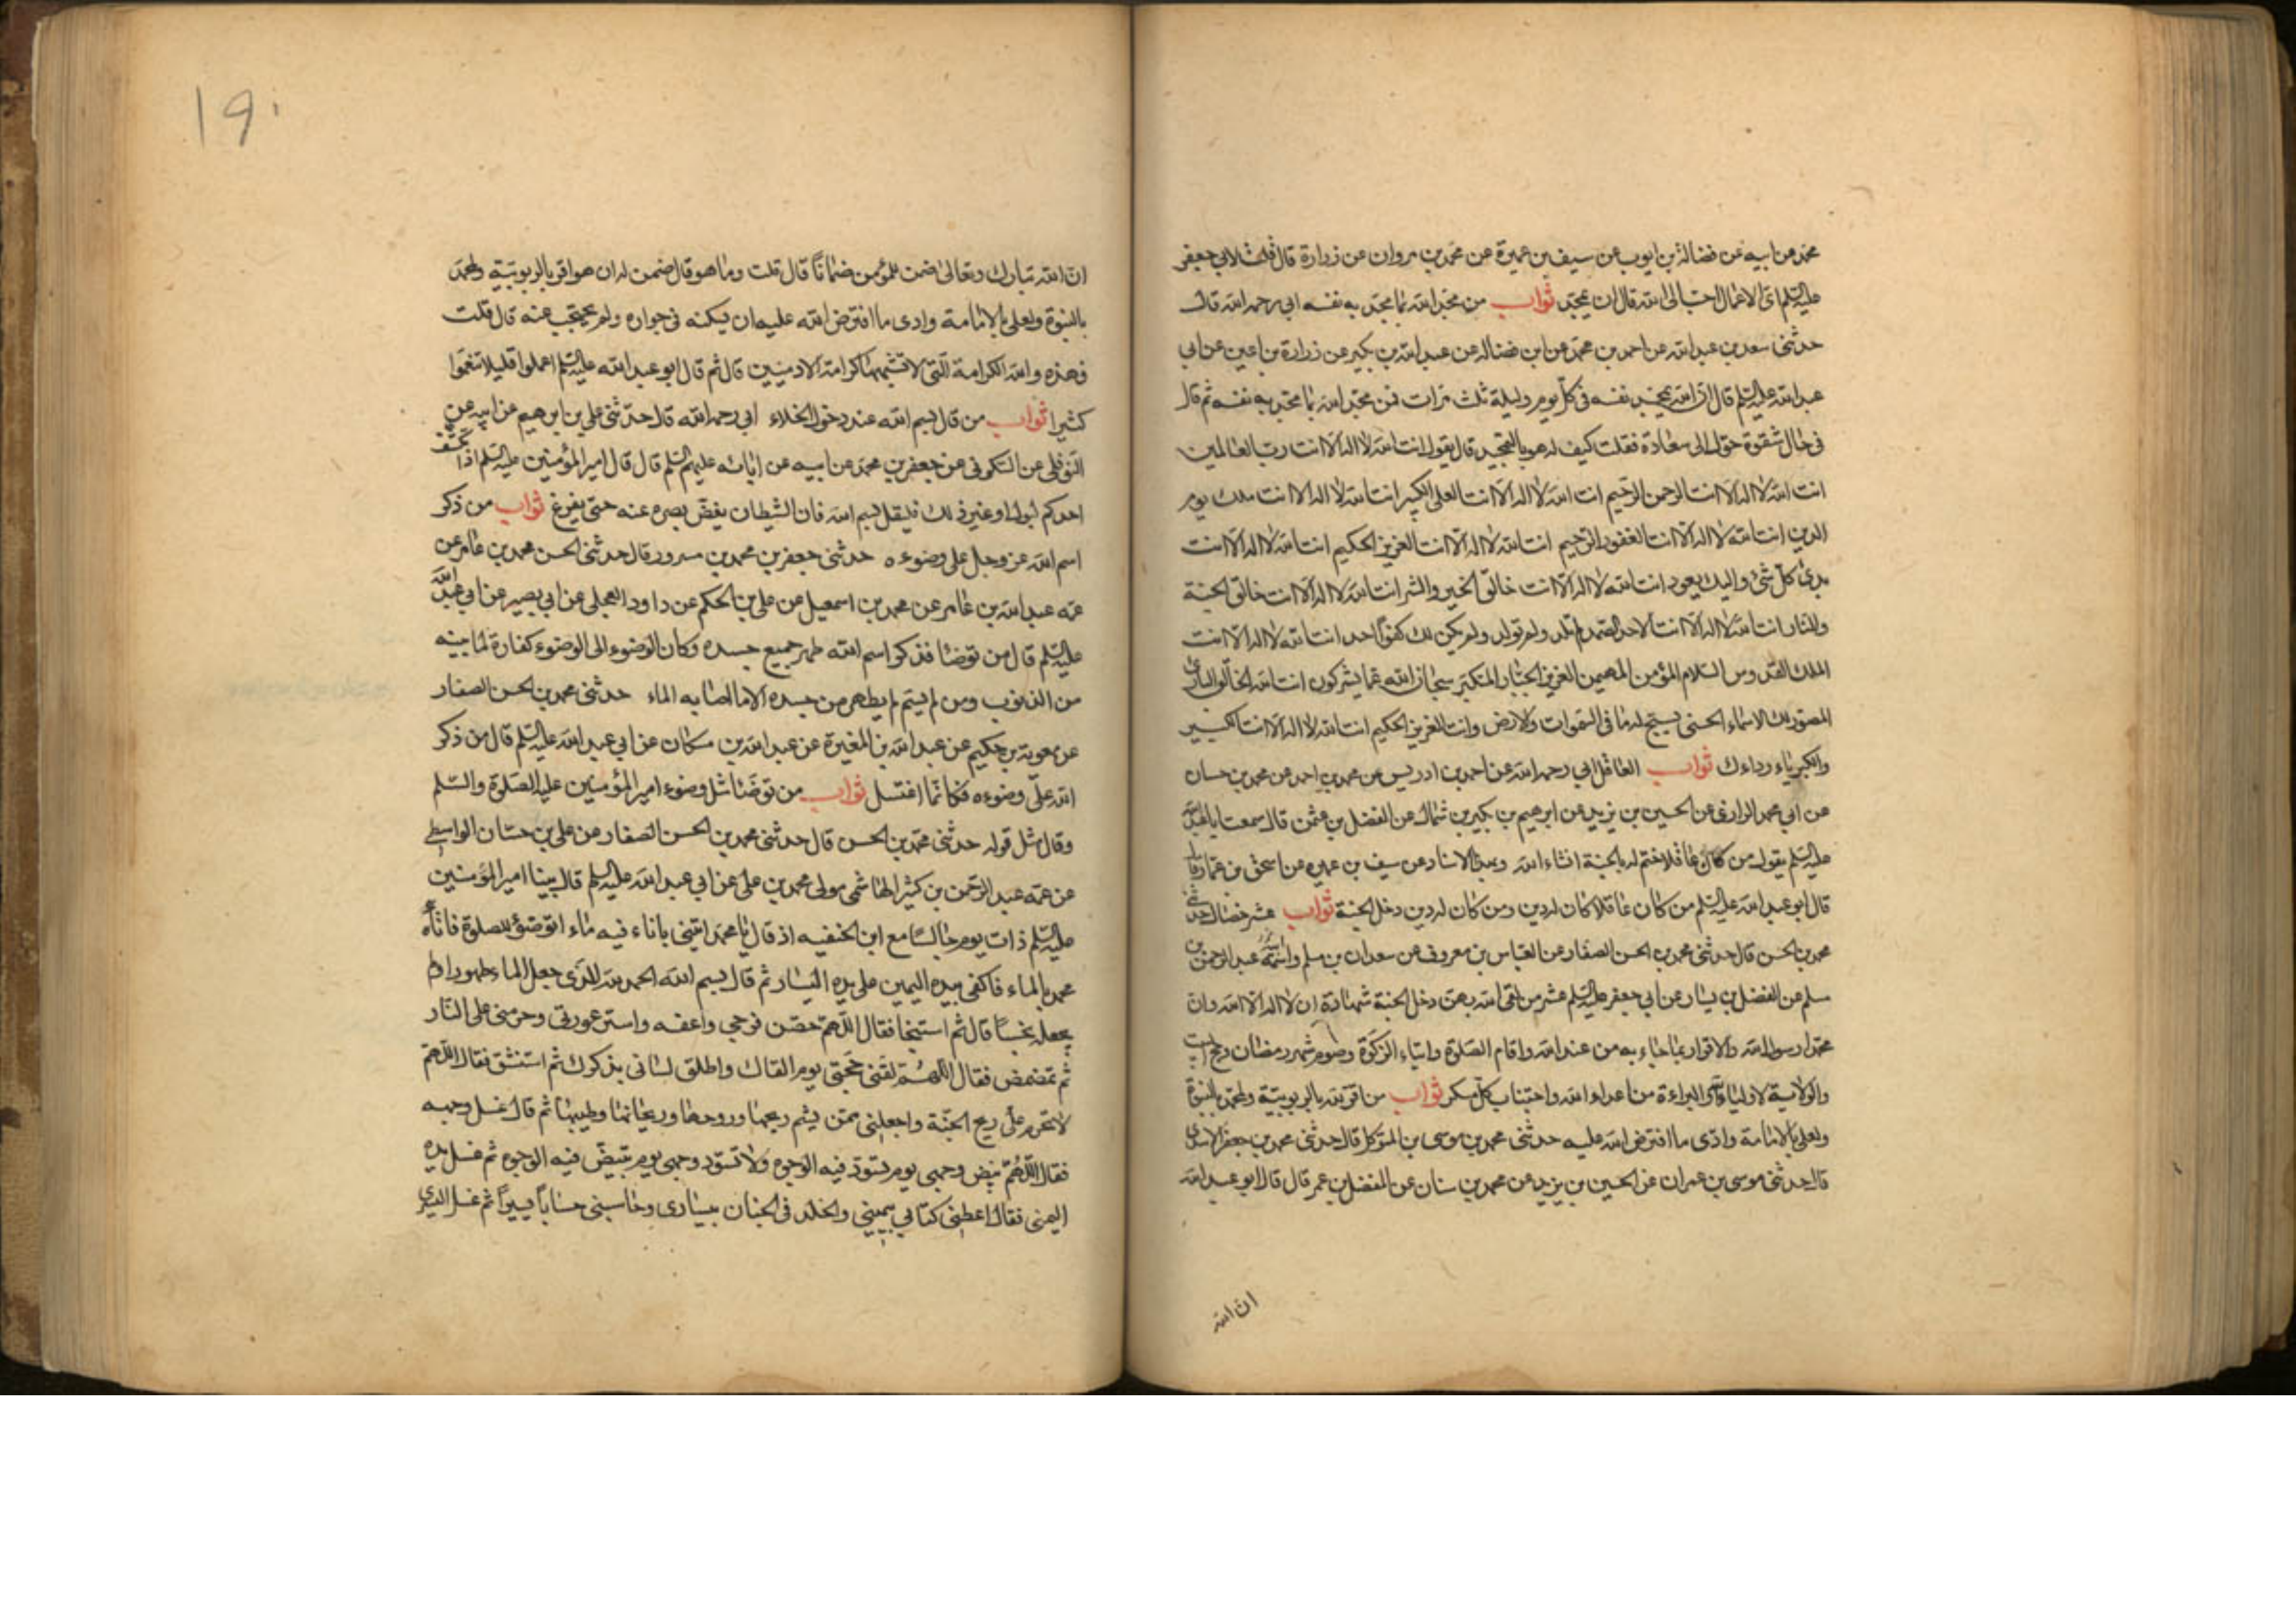 محمد عن ابيه عن فضالة بن ايوب عن سيف بن عميرة عن محمد بن مروان عن زرارة قال قلت لابي جعفر
عليه السلم اى الاعمال احب الى الله قال ان يمجد ثواب من مجد الله بما مجد به نفسه ابي رحمه الله قال
حدثني سعد بن عبد الله عن احمد بن محمد عن ابن فضاله عن عبد الله بن بكير عن زرارة بن اعين عن ابي
عبد الله عليه السلم قال ان الله يمجد نفسه فى كل يوم وليلة ثلث مرات فمن مجد الله بما مجد به نفسه ثم قال
فى حال شقوة حول الى سعادة فقلت كيف له هو بالتمجيد قال يقول انت الله لا اله الا انت رب العالمين
انت الله لا اله الا انت الرحمن الرحيم انت الله لا اله الا انت العلى الكبير انت الله لا اله الا انت ملك يوم
الدين انت الله لا اله الا انت الغفور الرحيم انت الله لا اله الا انت العزيز الحكيم انت الله لا اله الا انت
بدئ كل شئ واليك يعود انت الله لا اله الا انت خالق الخير والشر انت الله لا اله الا انت خالق الجنة
والنار انت الله لا اله الا انت الاحد الصمد لم تلد ولم تولد ولم يكن لك كفوا احد انت الله لا اله الا انت
الملك القدوس السلام المؤمن المهيمن العزيز الجبار المتكبر سبحان الله عما يشركون انت الله الخالق البارئ
المصور لك الاسماء الحسنى يسبح له ما فى السموات والارض وانت العزيز الحكيم انت الله لا اله الا انت الكبير
والكبرياء رداءك ثواب العاقل ابي رحمه الله عن احمد بن ادريس عن محمد بن احمد عن محمد بن حسان
عن ابي محمد الرازى عن الحسين بن يزيد عن ابرهيم بن بكير بن شمال عن الفضل بن عثمن قال سمعت ابا عبد الله
عليه السلم يقول من كان عاقلا ختم له بالجنة انشاء الله وبهذا الاسناد عن سيف بن عميره عن اسحق بن عمار قال
قال ابو عبد الله عليه السلم من كان عاقلا كان له دين ومن كان له دين دخل الجنة ثواب عشر خصال حدثنى
محمد بن الحسن قال حدثنى محمد بن الحسن الصفار عن العباس بن معروف عن سعدان بن مسلم واسمه عبد الرحمن بن
مسلم عن الفضل بن يسار عن ابي جعفر عليه السلم عشر من لقى الله بهن دخل الجنة شهادة ان لا اله الا الله وان
محمدا رسول الله والاقرار بما جاء به من عند الله واقام الصلوة وايتاء الزكوة وصوم شهر رمضان وحج البيت
والولاية لاولياء الله والبراءة من اعداء الله واجتناب كل مسكر ثواب من اقر لله بالربوبية ولمحمد بالنبوة
ولعلي بالامامة وادى ما افترض الله عليه حدثنى محمد بن موسى بن المتوكل قال حدثنى محمد بن جعفر الاسدى
قال حدثنى موسى بن عمران عن الحسين بن يزيد عن محمد بن سنان عن المفضل بن عمر قال قال ابو عبد الله
ان الله
١٩٠
ان الله تبارك وتعالى ضمن للمؤمن ضمانا قال قلت وما هو قال ضمن له ان هو اقر بالربوبية ولمحمد
بالنبوة ولعلي بالامامة وادى ما افترض الله عليه ان يسكنه فى جواره ولم يحتجب عنه قال قلت
فهذه والله الكرامة التى لا تشبهها كرامة الادميين قال ثم قال ابو عبد الله عليه السلم اعملوا قليلا تنعموا
كثيرا ثواب من قال بسم الله عند دخول الخلاء ابي رحمه الله قال حدثنى علي بن ابرهيم عن ابيه عن
النوفلى عن السكونى عن جعفر بن محمد عن ابيه عن ابائه عليهم السلم قال قال امير المؤمنين عليه السلم اذا تكشف
احدكم لبول او غير ذلك فليقل بسم الله فان الشيطان يغض بصره عنه حتى يفرغ ثواب من ذكر
اسم الله عز وجل على وضوءه حدثنى جعفر بن محمد بن مسرور قال حدثنى الحسن محمد بن عامر عن
عمه عبد الله بن عامر عن محمد بن اسمعيل عن علي بن الحكم عن داود العجلى عن ابي بصير عن ابي عبد الله
عليه السلم قال من توضا فذكر اسم الله طهر جميع جسده وكان الوضوء الى الوضوء كفارة لما بينه
من الذنوب ومن لم يسم لم يطهر من جسده الا ما اصابه الماء حدثنى محمد بن الحسن الصفار
عن معوية بن حكيم عن عبد الله بن المغيرة عن عبد الله بن مسكان عن ابي عبد الله عليه السلم قال من ذكر
الله على وضوءه فكانما اغتسل ثواب من توضا مثل وضوء امير المؤمنين عليه الصلوة والسلم
وقال مثل قوله حدثنى محمد بن الحسن قال حدثنى محمد بن الحسن الصفار عن علي بن حسان الواسطى
عن عمه عبد الرحمن بن كثير الهاشمى مولى محمد بن على عن ابي عبد الله عليه السلم قال بينا امير المؤمنين
عليه السلم ذات يوم جالسا مع ابن الحنفيه اذ قال يا محمد ايتنى باناء فيه ماء اتوضؤ للصلوة فاتاه
محمد بالماء فاكفى بيده اليمين على يده اليسار ثم قال بسم الله الحمد لله الذى جعل الماء طهورا ولم
يجعله نجسا قال ثم استنجا فقال اللهم حصن فرجى واعفه واستر عورتى وحرمنى على النار
ثم تمضمض فقال اللهم لقنى حجتى يوم القاك واطلق لسانى بذكرك ثم استنشق فقال اللهم
لا تحرم على ريح الجنة واجعلنى ممن يشم ريحها وروحها وريحانها وطيبها ثم قال غسل وجهه
فقال اللهم بيض وجهى يوم تسود فيه الوجوه ولا تسود وجهى يوم تبيض فيه الوجوه ثم غسل يده
اليمنى فقال اعطنى كتابى بيمينى والخلد فى الجنان بيسارى وحاسبنى حسابا يسيرا ثم غسل اليسرى